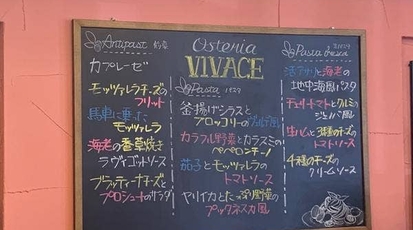 Antipasti 前菜
カプレーゼ
モッツァレラチーズの
フリット
馬車に乗った
モッツァレラ
海老の香草焼き
ラヴィゴットソース
ブラッティーナチーズと
プロシュートのサラダ
Osteria
VIVACE
Pasta パスタ
釜揚げシラスと
ブロッコリーの
カラフル野菜とカラスミの
ペペロンチーノ
茄子とモッツァレラの
トマトソース
ヤリイカとたっぷり野菜の
プッタネスカ風
Pasta fresca
と海老の
地中海風パスタ
チェリートマトとクルミの
ジェノバ風
生ハムと3種のチーズの
トマトソース
4種のチーズの
クリームソース